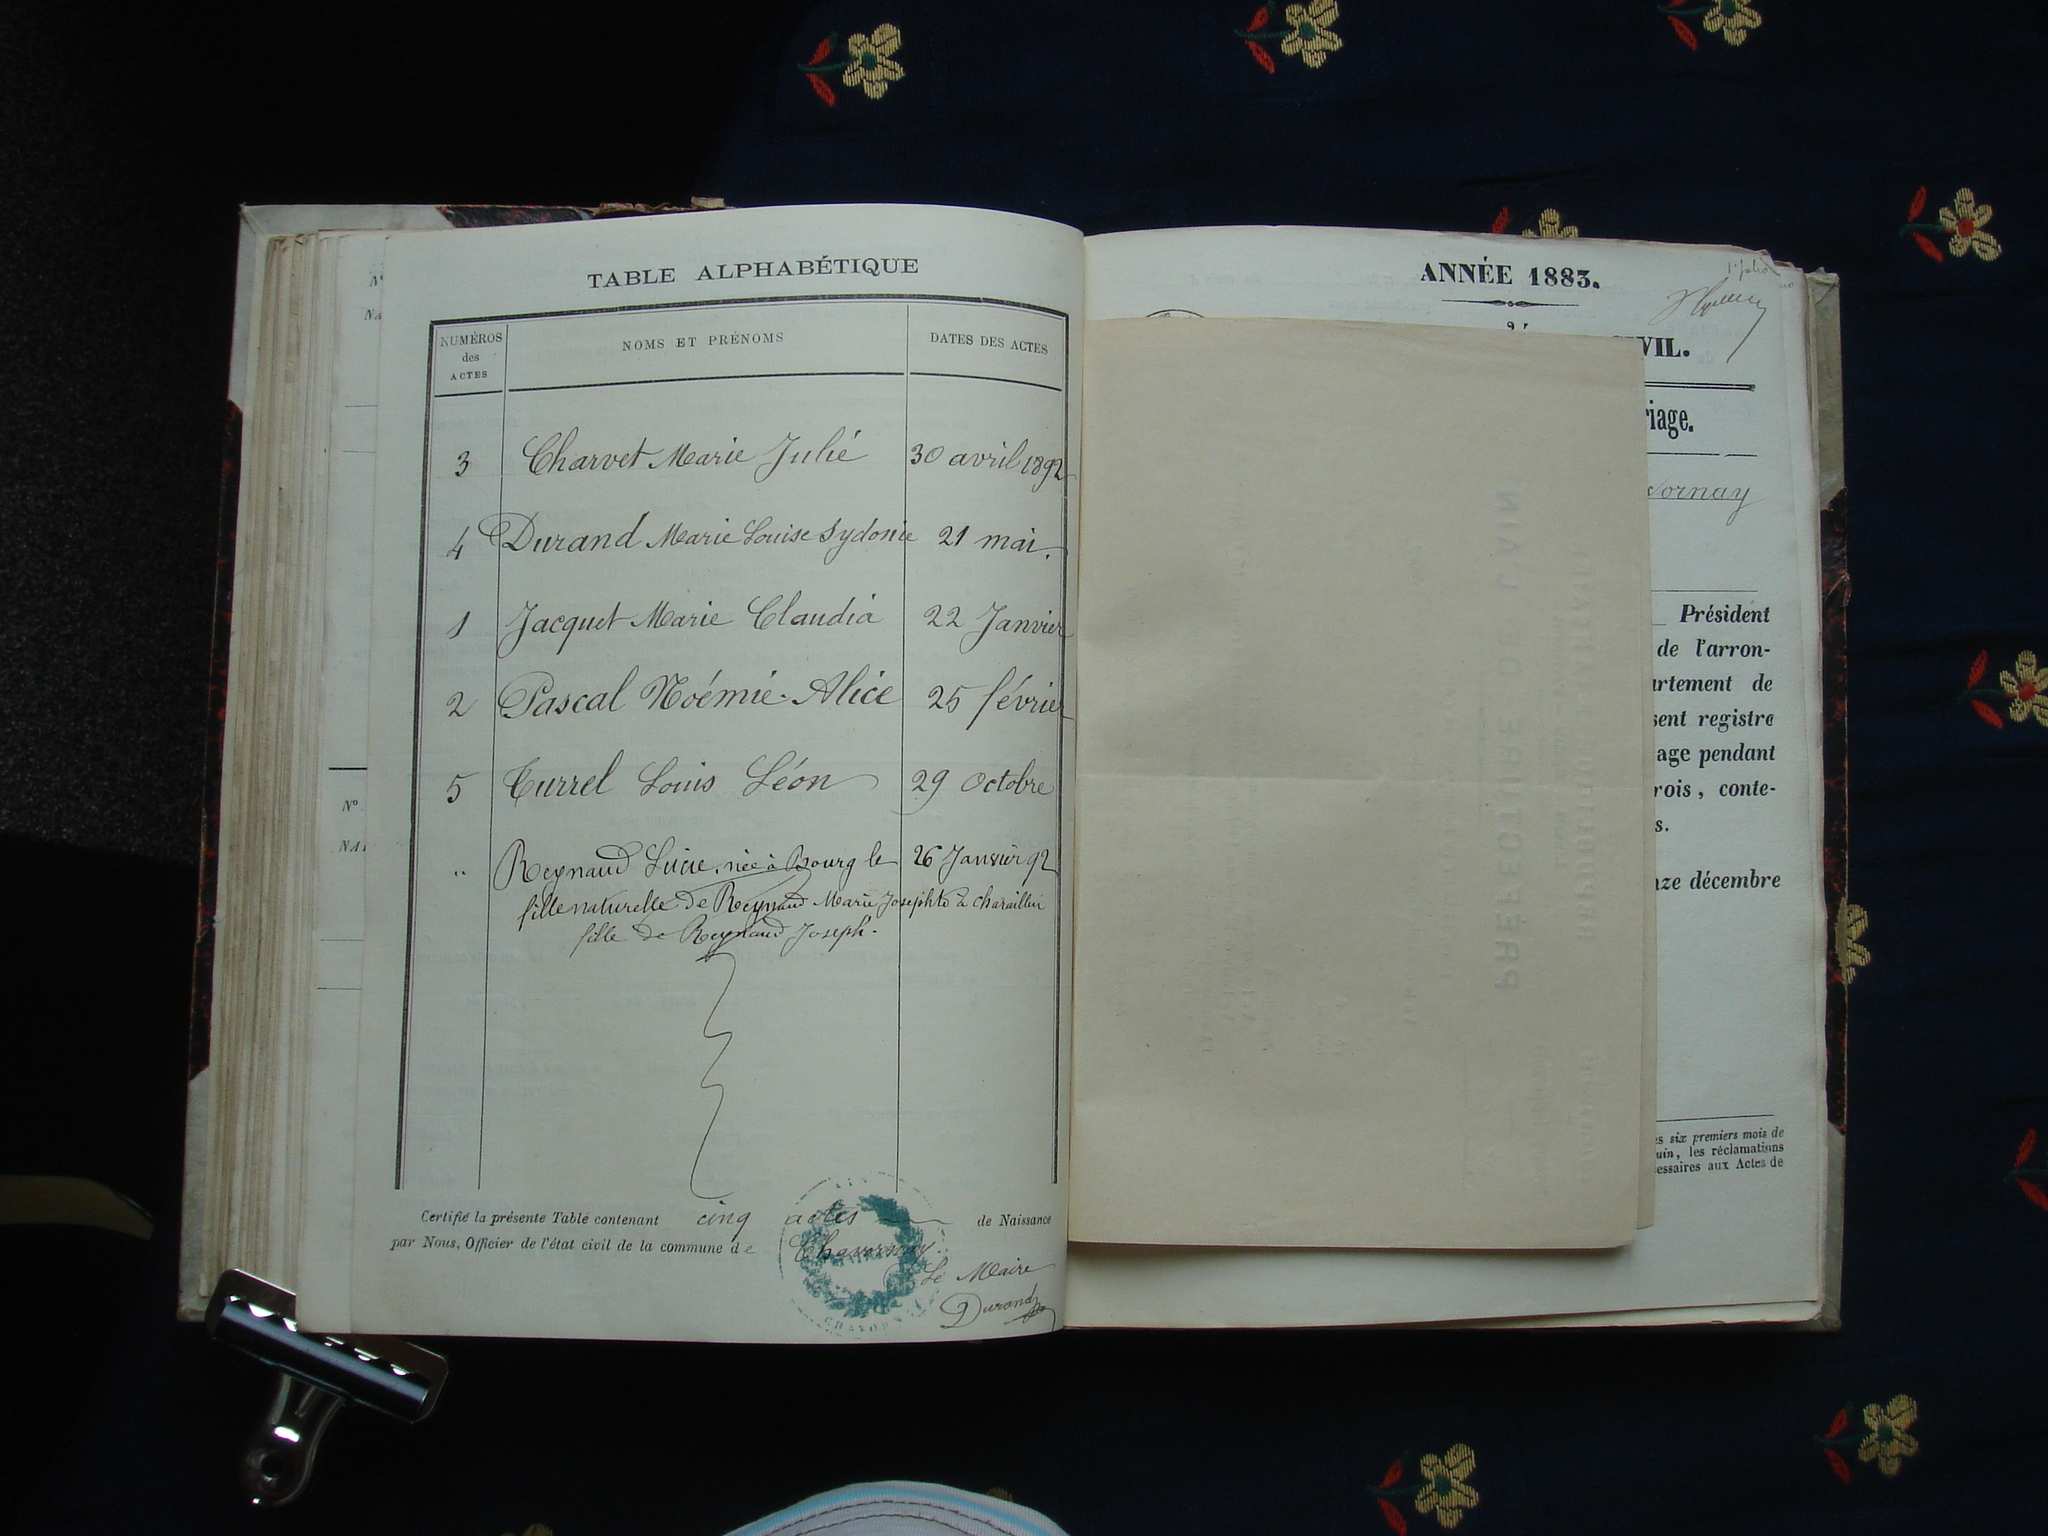 TABLE ALPHABÉTIQUE
NUMÉROS
des
ACTES
NOMS ET PRÉNOMS
DATES DES ACTES
3 Charvet Marie Julie 30 avril 1892
4 Durand Marie Louise Sydonie 21 mai.
1 Jacquet Marie Claudia 22 Janvier
2 Pascal Noémie-Alice 25 février
5 Turrel Louis Léon 29 Octobre
" Reynaud Lucie, née à Bourg le 26 Janvier 92
fille naturelle de Reynaud Marie Josephte à
fille de Reynaud Joseph.
Certifié la présente Table contenant cinq actes de Naissance
par Nous, Officier de l'état civil de la commune de Chavornay.
Le Maire
Durand
N°
Na
N°
NAI
ANNÉE 1883.
1er folio
VIL.
riage.
vornay
Président
de l'arron-
artement de
sent registre
age pendant
rois, conte-
s.
nze décembre
es six premiers mois de
uin, les réclamations
essaires aux Actes de
PRÉFECTURE DE L'AIN